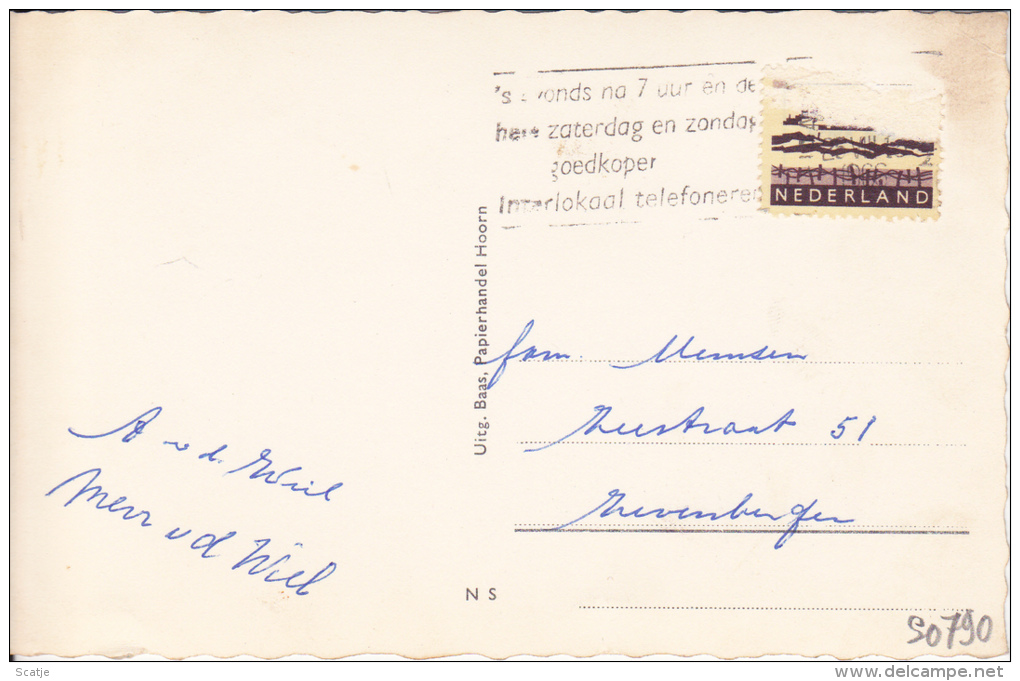 's avonds na 7 uur en de
hele zaterdag en zondag
goedkoper
Interlokaal telefoneren
NEDERLAND
Uitg. Baas, Papierhandel Hoorn
fam.
51
Zevenbergen
A v. d. Wiel
Mevr v d Wiel
N S
SO790
Scatje
www.delcampe.net